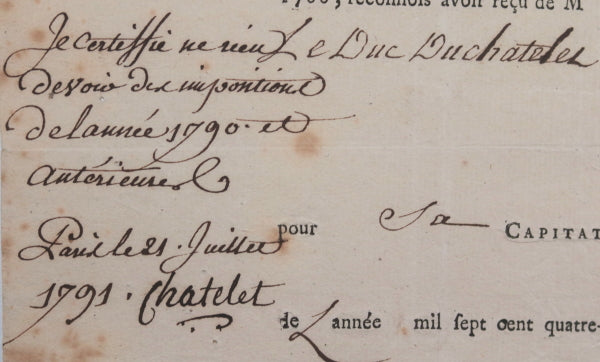 1788, reconnois avoir reçu de M
Je certiffie ne rien Le Duc Duchatelet
devoir des impositions
de l'année 1790. et
antérieures
pour Sa CAPITAT
Paris le 21. Juillet
1791. Chatelet
de L année mil sept cent quatre-